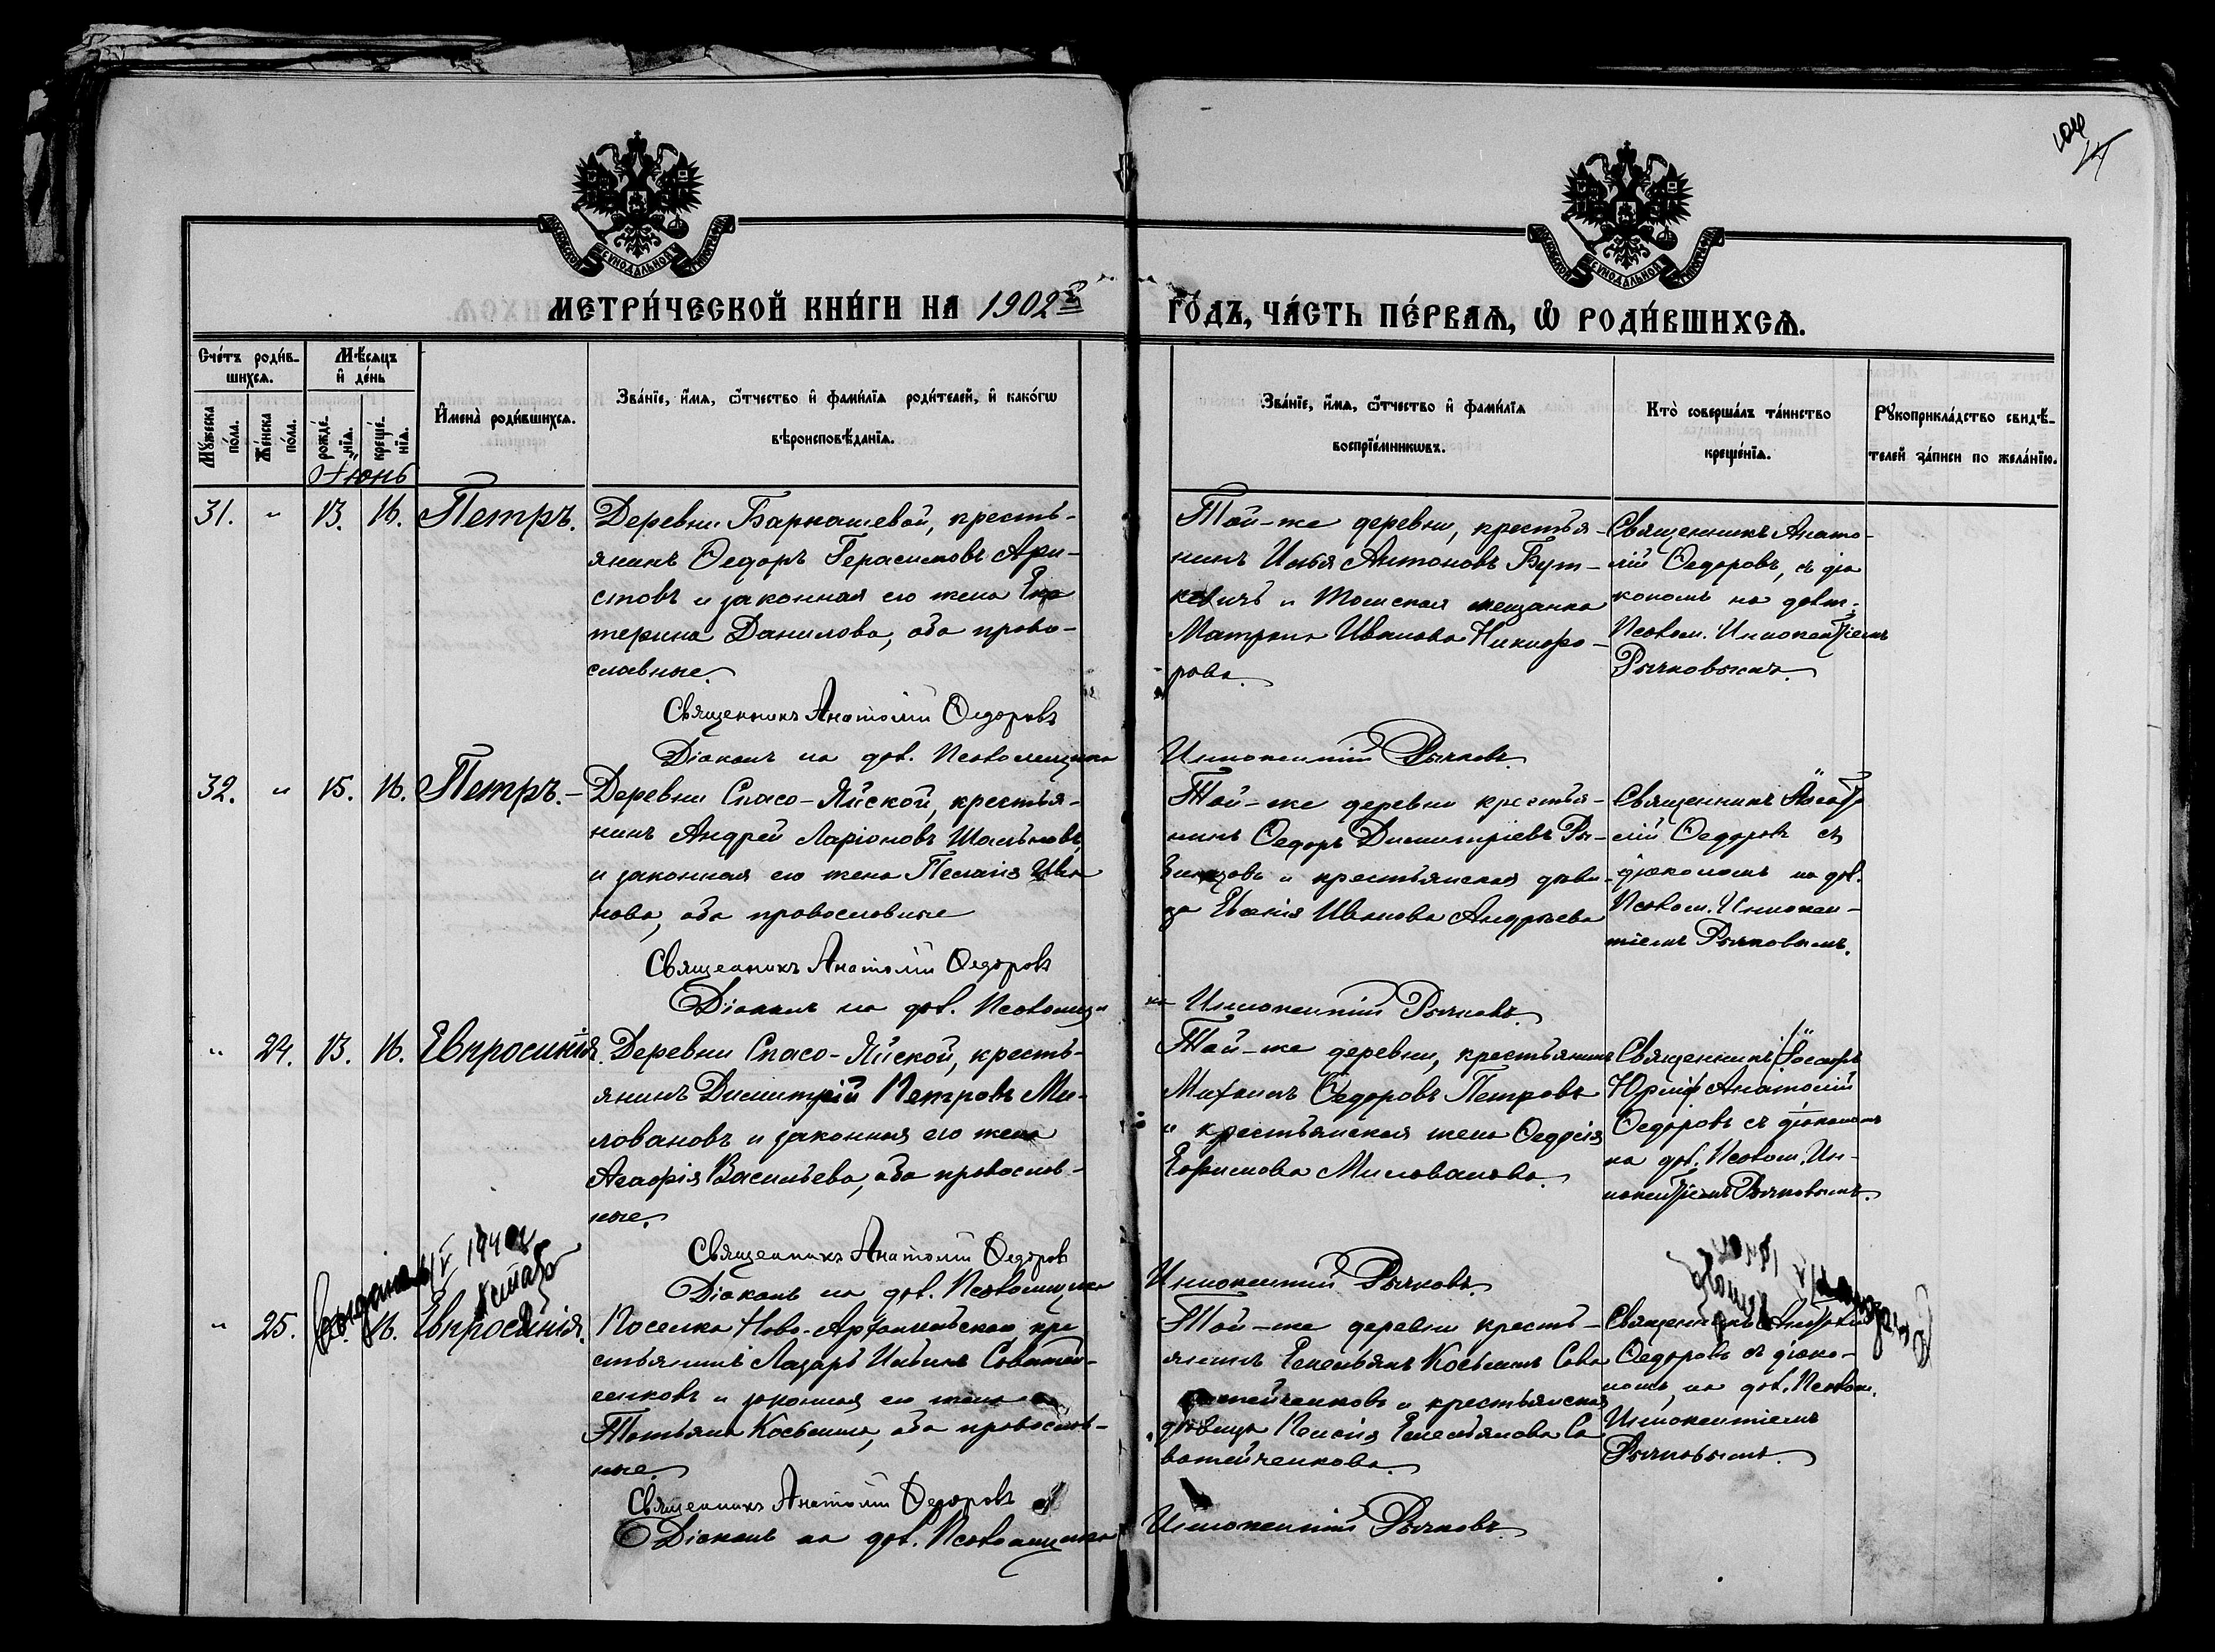 МЕТРИ́ЧЕСКОЙ КНИ́ГИ НА 1902й
ГО́ДЪ, ЧА́СТЬ ПЕ́РВАѦ, Ѡ҆ РОДИ́ВШИХСѦ.
Сче́тъ роди́в-
шихсѧ.
Мꙋ́жеска по́ла.
Же́нска по́ла.
Мѣ́сѧцъ
и҆ де́нь
рожде́-
нїѧ.
креще́-
нїѧ.
И҆мена̀ роди́вшихсѧ.
Зва́нїе, и҆́мѧ, ѻ҆́тчество и҆ фами́лїѧ роди́телей, и҆ како́гѡ
вѣроисповѣ́данїѧ.
Зва́нїе, и҆́мѧ, ѻ҆́тчество и҆ фами́лїѧ
воспрїе́мникѡвъ.
Кто̀ соверша́лъ та́инство
креще́нїѧ.
Рꙋкоприкла́дство свидѣ́-
телей за́писи по жела́нїю.
Іюнь
31. " 13. 16. Петръ.
Деревни Барнашевой, кресть-
янинъ Ѳедоръ Герасимовъ Ари-
стовъ и законная его жена Ека
терина Данилова, оба право-
славные.
Священникъ Анатолій Ѳедоровъ
Діаконъ на дов. Псаломщика
Той-же деревни, крестья-
нинъ Илья Антоновъ Бут-
кевичъ и Томская мещанка
Матрона Иванова Никифо-
рова.
Иннокентій Рычковъ.
Священникъ Анато-
лій Ѳедоровъ, съ діа
кономъ на дов.
Псалом. Иннокентіемъ
Рычковымъ.
32. " 15. 16. Петръ.-
Деревни Спасо-Яйской, крестья-
нинъ Андрей Ларіоновъ
и законная его жена Пелагія Ива
нова, оба православные
Священникъ Анатолій Ѳедоровъ
Діаконъ на дов. Псаломщи
Той-же деревни крестья-
нинъ Ѳедоръ Димитріевъ
и крестьянская дѣви-
ца Евгенія Иванова Андреева
ка Иннокентій Рычковъ.
Священникъ
лій Ѳедоровъ съ
діакономъ на дов.
Псалом. Иннокен-
тіемъ Рычковымъ.
" 24. 13. 16. Евпросинія.
Деревни Спасо-Яйской, кресть-
янинъ Димитрій Петровъ Ми-
ловановъ и законная его жена
Агафія Васильева, оба православ-
ные.
Священникъ Анатолій Ѳедоровъ
Діаконъ на дов. Псаломщика
Той-же деревни, крестьянинъ
Михаилъ Ѳедоровъ Петровъ
и крестьянская жена Ѳедосія
Ефимова Милованова.
Иннокентій Рычковъ.
Священникъ
Анатолій
Ѳедоровъ съ діакономъ
на дов. Псалом. Ин-
нокентіемъ Рычковымъ.
1940
" 25. 16. Евпросинія.
Поселка
стьянинъ Лазарь Ильинъ Саватей-
ченковъ и законная его жена
Татьяна Косьмина, оба православ-
ные.
Священникъ Анатолій Ѳедоровъ
Діаконъ на дов. Псаломщика
Той-же деревни кресть-
янинъ Емельянъ Косьминъ Сава
тейченковъ и крестьянская
дѣвица Пелагія Емельянова Са
ватейченкова.
Иннокентій Рычковъ.
Священникъ Анатолій
Ѳедоровъ съ діако-
номъ, на дов. Псалом.
Иннокентіемъ
Рычковымъ.